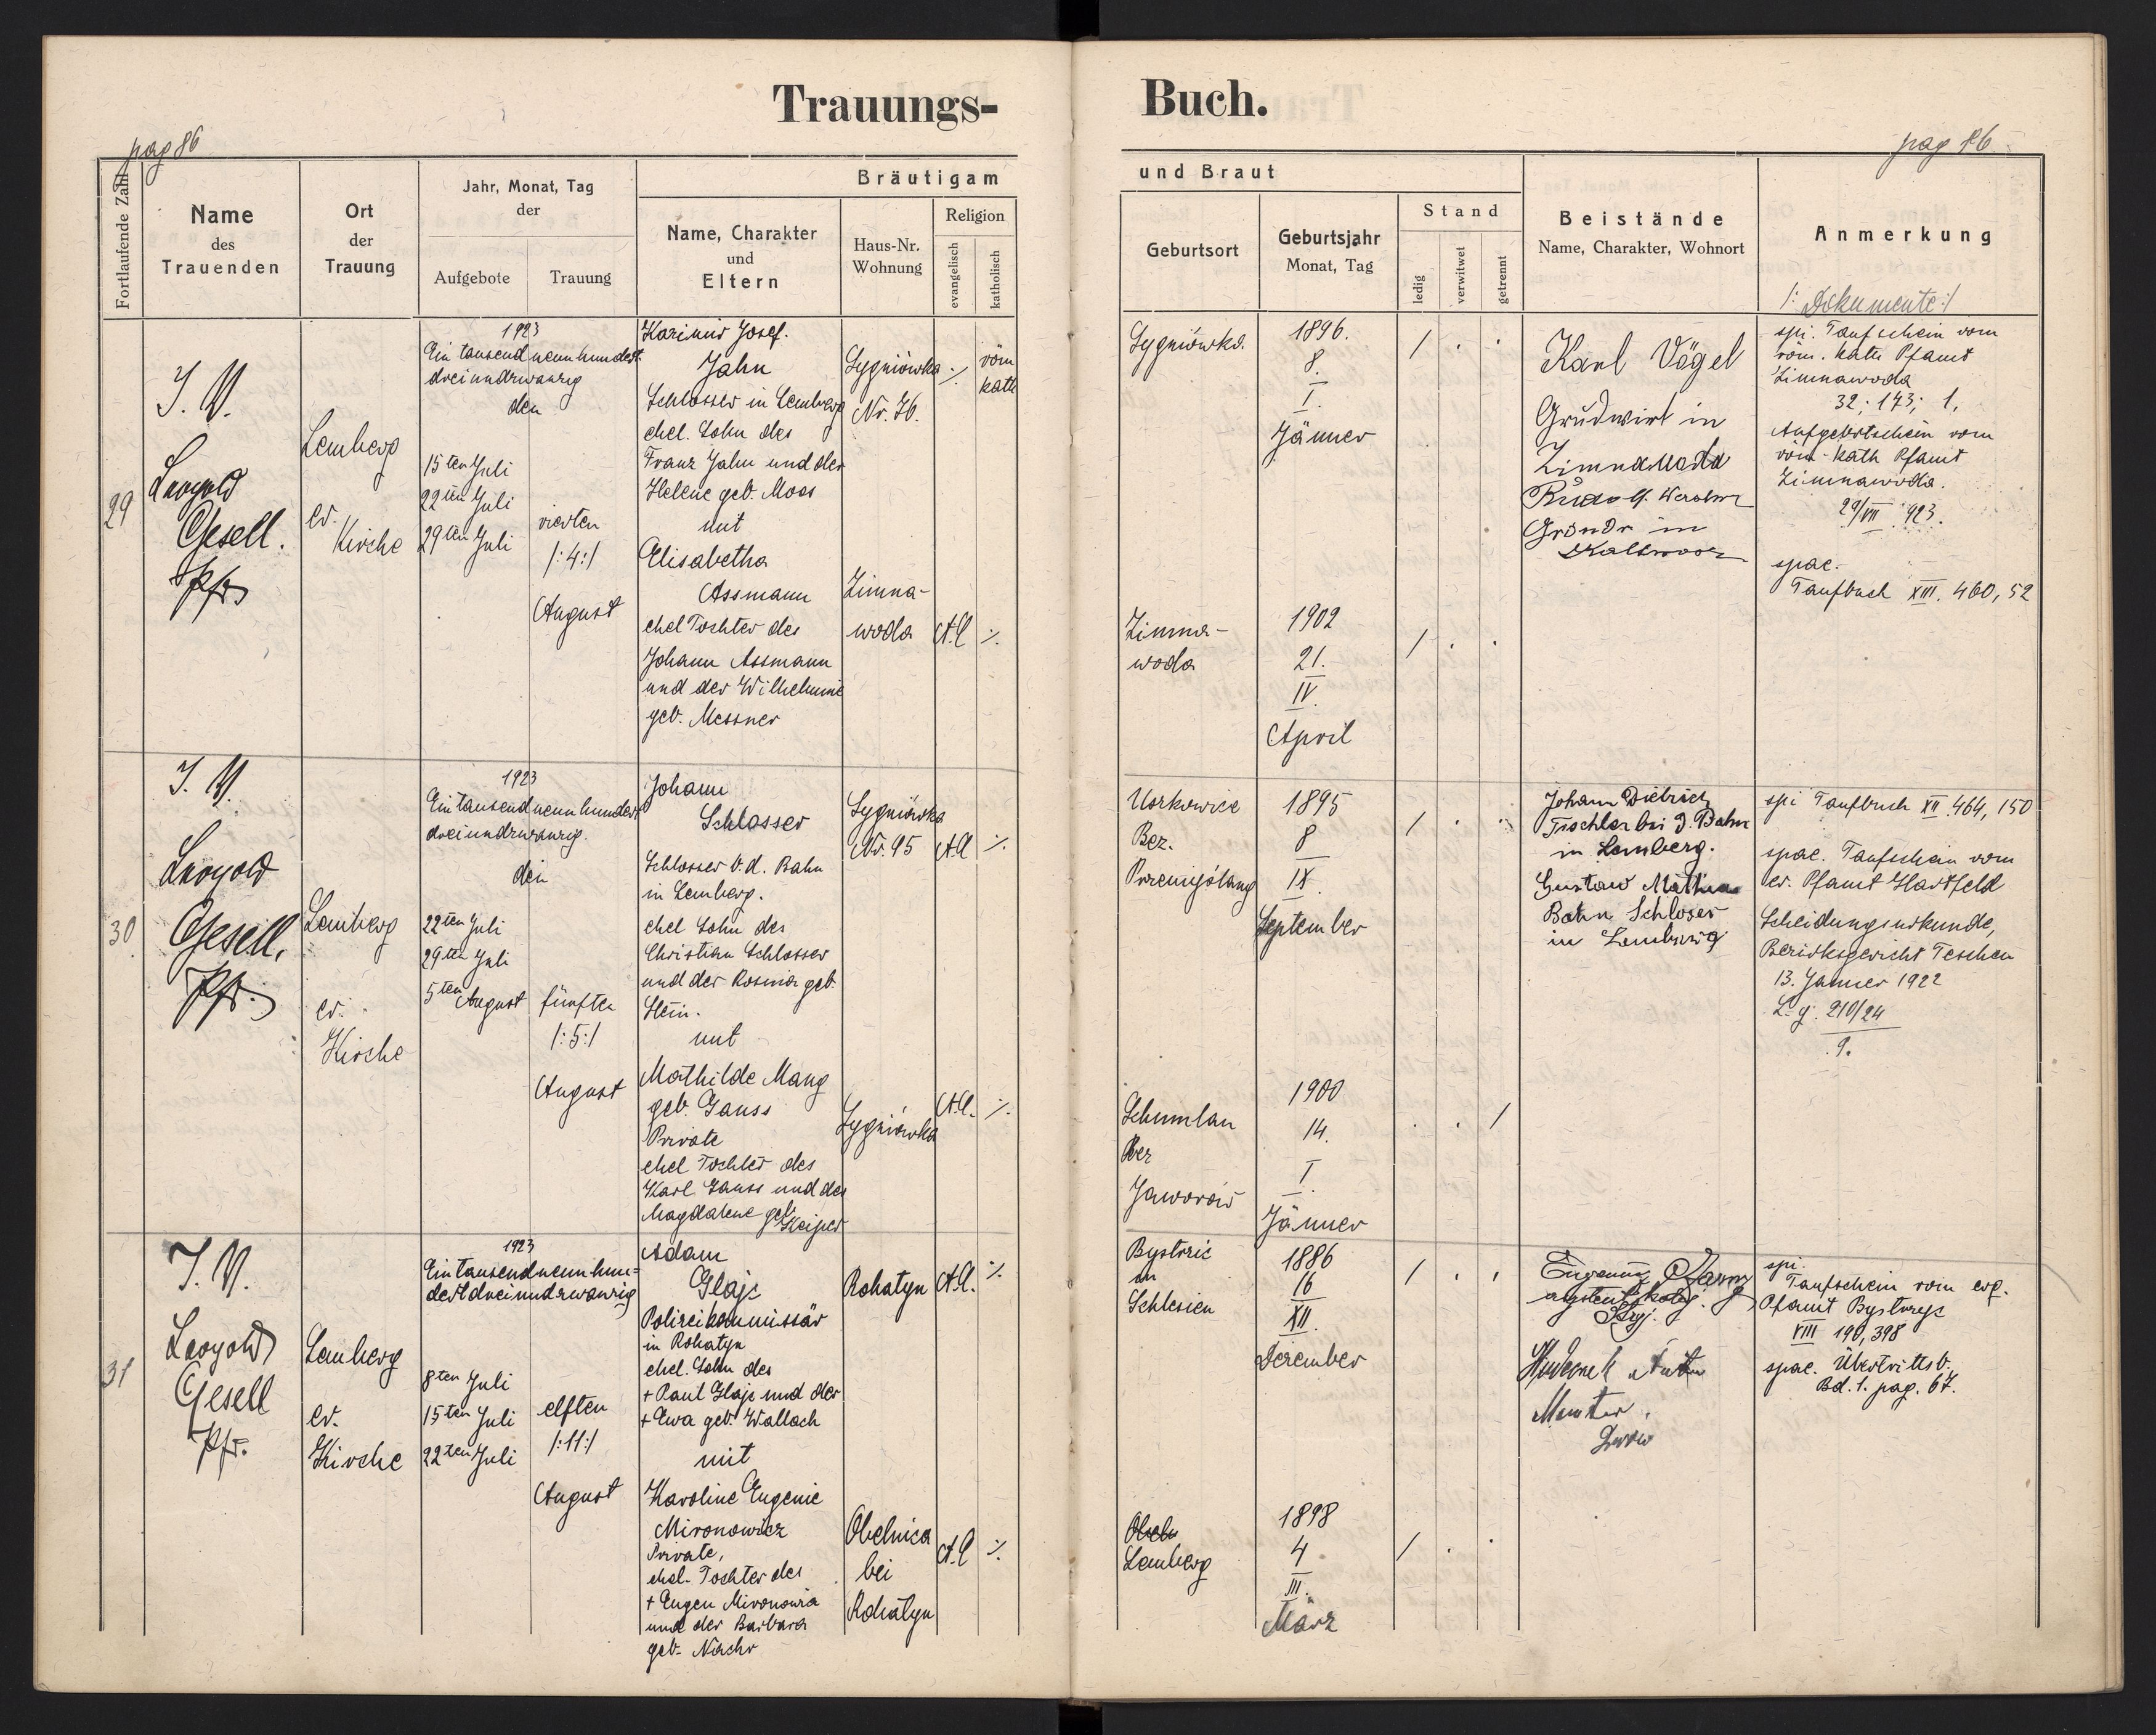 Trauungs-
Buch.
pag 86
pag 86
Fortlaufende Zahl
Name
des
Trauenden
Ort
der
Trauung
Jahr, Monat, Tag
der
Aufgebote
Trauung
Bräutigam
Name, Charakter
und
Eltern
Haus-Nr.
Wohnung
Religion
evangelisch
katholisch
und Braut
Geburtsort
Geburtsjahr
Monat, Tag
Stand
ledig
verwitwet
getrennt
Beistände
Name, Charakter, Wohnort
Anmerkung
/: Dokumente :/
29
I. V.
Leopold
Gesell.
Pfr.
Lemberg
ev.
Kirche
1923
Ein tausend neunhundert
dreiundzwanzig
den
15ten Juli
22ten Juli
29ten Juli
vierten
/:4:/
August
Kazimir Josef.
Jahn
Schlosser in Lemberg
ehel. Sohn des
Franz Jahn und der
Helene geb. Moos
mit
Elisabetha
Assmann
ehel Tochter des
Johann Assmann
und der Wilhelmine
geb. Messner
Sygniówka
Nr. 76.
Zimna-
woda
·/.
röm
kath
A.C
·/.
Sygniówka.
1896.
8.
I.
Jänner
/ . .
Zimna-
woda
1902
21.
IV.
April
/ . .
Karl Vögel
Grudwirt in
Zimnawoda
Gröndr in
spi. Taufschein vom
röm. kath Pfamt
Zimnawoda
32; 173; 1,
Aufgebotschein vom
röm-kath Pfamt
Zimnawoda.
29/VII. 923.
spae.
Taufbuch XIII. 460, 52
30
I. V.
Leopold
Gesell,
Pfr.
Lemberg
ev.
Kirche
1923
Ein tausend neunhundert
dreiundzwanzig.
den
22ten Juli
29ten Juli
5ten August
fünften
/:5:/
August
Johann
Schlosser
Schlosser b. d. Bahn
in Lemberg.
ehel Sohn des
Christian Schlosser
und der Rosina geb.
Stein.
mit
Mathilde Mang
geb. Gauss
Private
ehel Tochter des
Karl Gauss und der
Magdalene geb. Keiper
Sygniówka
Nr. 95
Sygniówka
A.C
·/.
A.C.
·/.
Uszkowice
Bez.
Przemyślany
1895
8
IX.
September
/ . .
Schumlau
Bez
Jaworów
1900
14.
I.
Jänner
. . /
Johann Dietrich
Tischler bei d. Bahn
in Lemberg.
Gustaw
Bahn Schlosser
in Lemberg
spi Taufbuch XII. 464, 150
spae. Taufschein vom
ev. Pfamt Hartfeld
Scheidungsurkunde,
Bezirksgericht Teschen
13. Jänner 1922
L. g. 210/24
9.
31
I. V.
Leopold
Gesell
Pfr.
Lemberg
ev.
Kirche
1923
Ein tausend neunhun=
dert dreiundzwanzig
8ten Juli
15ten Juli
22ten Juli
elften
/:11:/
August
Adam
Glajc
Polizeikommissär
in Rohatyn
ehel. Sohn des
+ Paul Glajc und der
+ Ewa geb. Wallach
mit
Karoline Eugenie
Mironowicz
Private,
ehel. Tochter des
+ Eugen Mironowicz
und der Barbara
geb. Nachr
Rohatyn
Obelnica
bei
Rohatyn
A.C.
·/.
A.C
·/.
Bystric
in
Schlesien
1886
16
XII.
Dezember
/ . .
Lemberg
1898
4
III.
März
/ . .
Stryj.
Lwów
spi.
Taufschein vom evg.
Pfamt Bystrzyc
VIII 190, 398
spae. Übertrittsb.
Bd. 1. pag. 67.